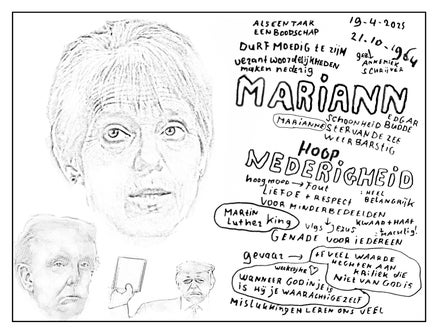 ALS EEN TAAR
EEN BOODSCHAP
19-4-2025
21-10-1964
DURF MOEDIG TE ZIJN
verantwoordelijkheden
maken nederig
ANNEMIEK
SCHRIJVER
MARIANN
EDGAR
SCHOONHEID BUDDE
MARIANNE STER VAN DE ZEE
WEERBARSTIG
HOOP
NEDERIGHEID
hoogmoed → fout
: HEEL
BELANGRIJK
LIEFDE + RESPECT
VOOR MINDERBEDEELDEN
MARTIN
Luther King
KWAAD + HAAT
vlgs JEZUS
GENADE VOOR IEDEREEN
gevaar →
TE VEEL WAARDE
HECHTEN AAN
KRITIEK DIE
NIET VAN GOD IS
WANNEER GOD IN JE IS
IS HIJ JE WAARACHTIGE ZELF
MISLUKKINGEN LEREN ONS VEEL